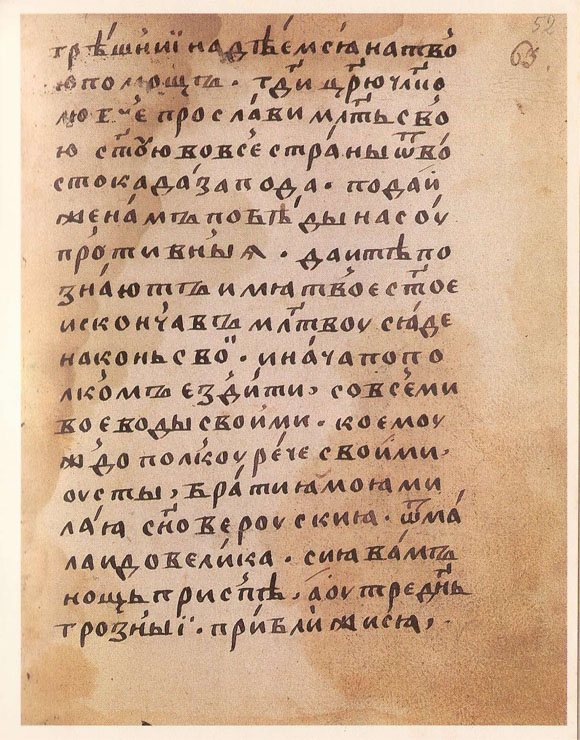 52
65.
грѣ́шнїи надѣ́емсѧ на тво̀
ю помощь. гдⷭ҇и цр҃ю чл҃ко
любче прослави мл҃ть сво̀
ю ст҃ую во все́ страны ѿ во́
стока до запода. подай
же на́мъ побѣды на соу
против́ныѧ. да и тѣ по
зна́ютъ имѧ твое ст҃ое
и скон҆ча́въ мл҃твоу сѧ́де
на конь свой. и нача по по
лко́мъ езди́ти, со все́ми
воеводы своими. коемоу
ждо полкоу ре́че своими
оусты, бра́тиѧ моѧ ми
лаѧ сн҃ове роускиѧ. ѿ ма́
ла и до вели́ка. сиѧ ва́мъ
нощь приспѣ, а оутре дн҃ь
грозныї. прибли́жисѧ,.